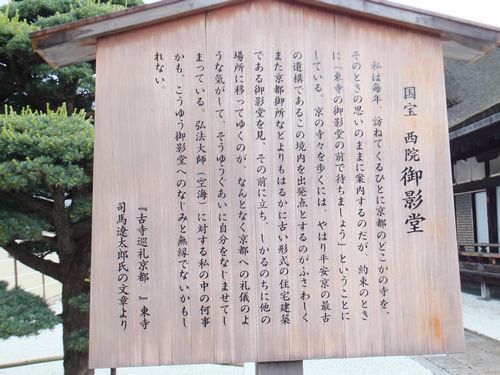 国宝 西院 御影堂
私は毎年、訪ねてくるひとに京都のどこかの寺を、
そのときの思いのままに案内するのだが、約束のとき
に「東寺の御影堂の前で待ちましょう」ということに
している。京の寺々を歩くには、やはり平安京の最古
の遺構であるこの境内を出発点とするのがふさわしく
また京都御所などよりもはるかに古い形式の住宅建築
である御影堂を見、その前に立ち、しかるのちに他の
場所に移ってゆくのが、なんとなく京都への礼儀のよ
うな気がして、そうゆうぐあいに自分をなじませてし
まっている。弘法大師（空海）に対する私の中の何事
かも、こうゆう御影堂へのなじみと無縁でないかもし
れない。
『古寺巡礼京都 』東寺
司馬遼太郎氏の文章より